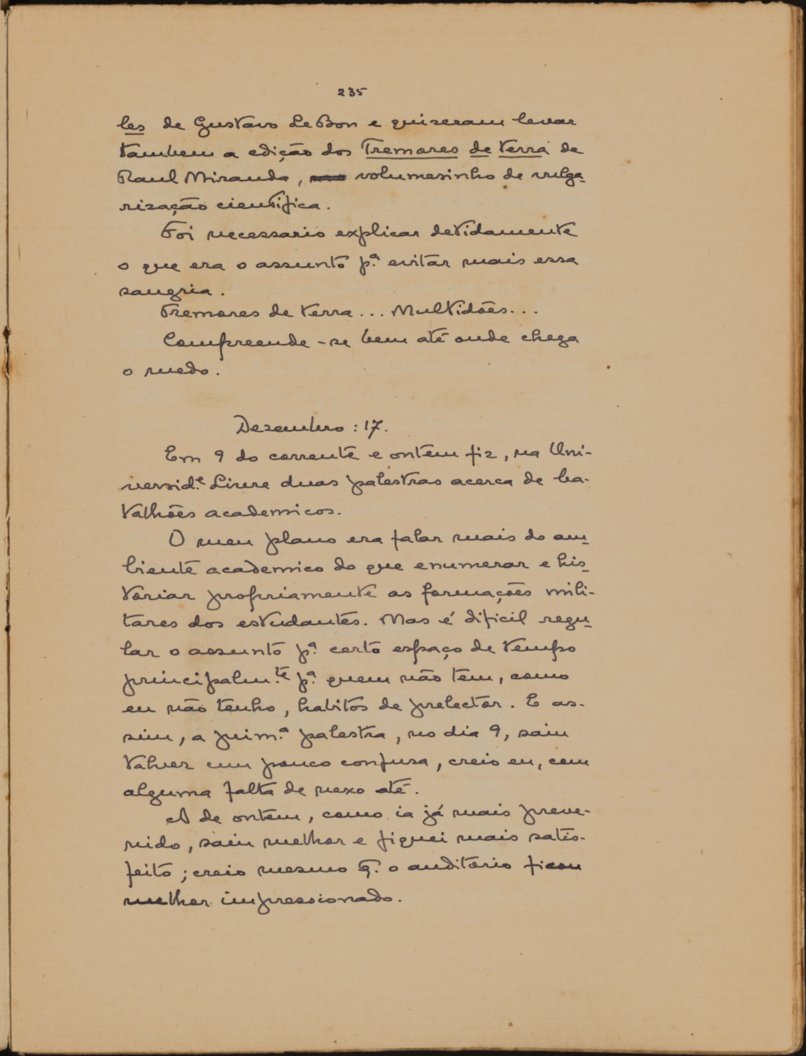 235
les de Gustavo Le Bon e quizeram levar
tambem a edição dos Tremores de terra de
Raul Miranda, volumesinho de vulga-
rização cientifica.
Foi necessario explicar detidamente
o que era o assunto p.ª evitar mais essa
sangria.
Tremores de terra... Multidões...
Compreende-se bem até onde chega
o medo.
Dezembro: 17.
Em 9 do corrente e ontem fiz, na Uni-
versid.e Livre duas palestras acerca de ba-
talhões academicos.
O meu plano era falar mais do am-
biente academico do que enumerar e his-
toriar propriamente as formações mili-
tares dos estudantes. Mas é dificil regu-
lar o assunto p.ª certo espaço de tempo
principalm.te p.ª quem não tem, como
eu não tenho, habitos de prelector. E as-
sim, a prim.ª palestra, no dia 9, saiu
talvez um pouco confusa, creio eu, com
alguma falta de nexo até.
A de ontem, como ia já mais preve-
nido, saiu melhor e fiquei mais satis-
feito; creio mesmo q. o auditorio ficou
melhor impressionado.